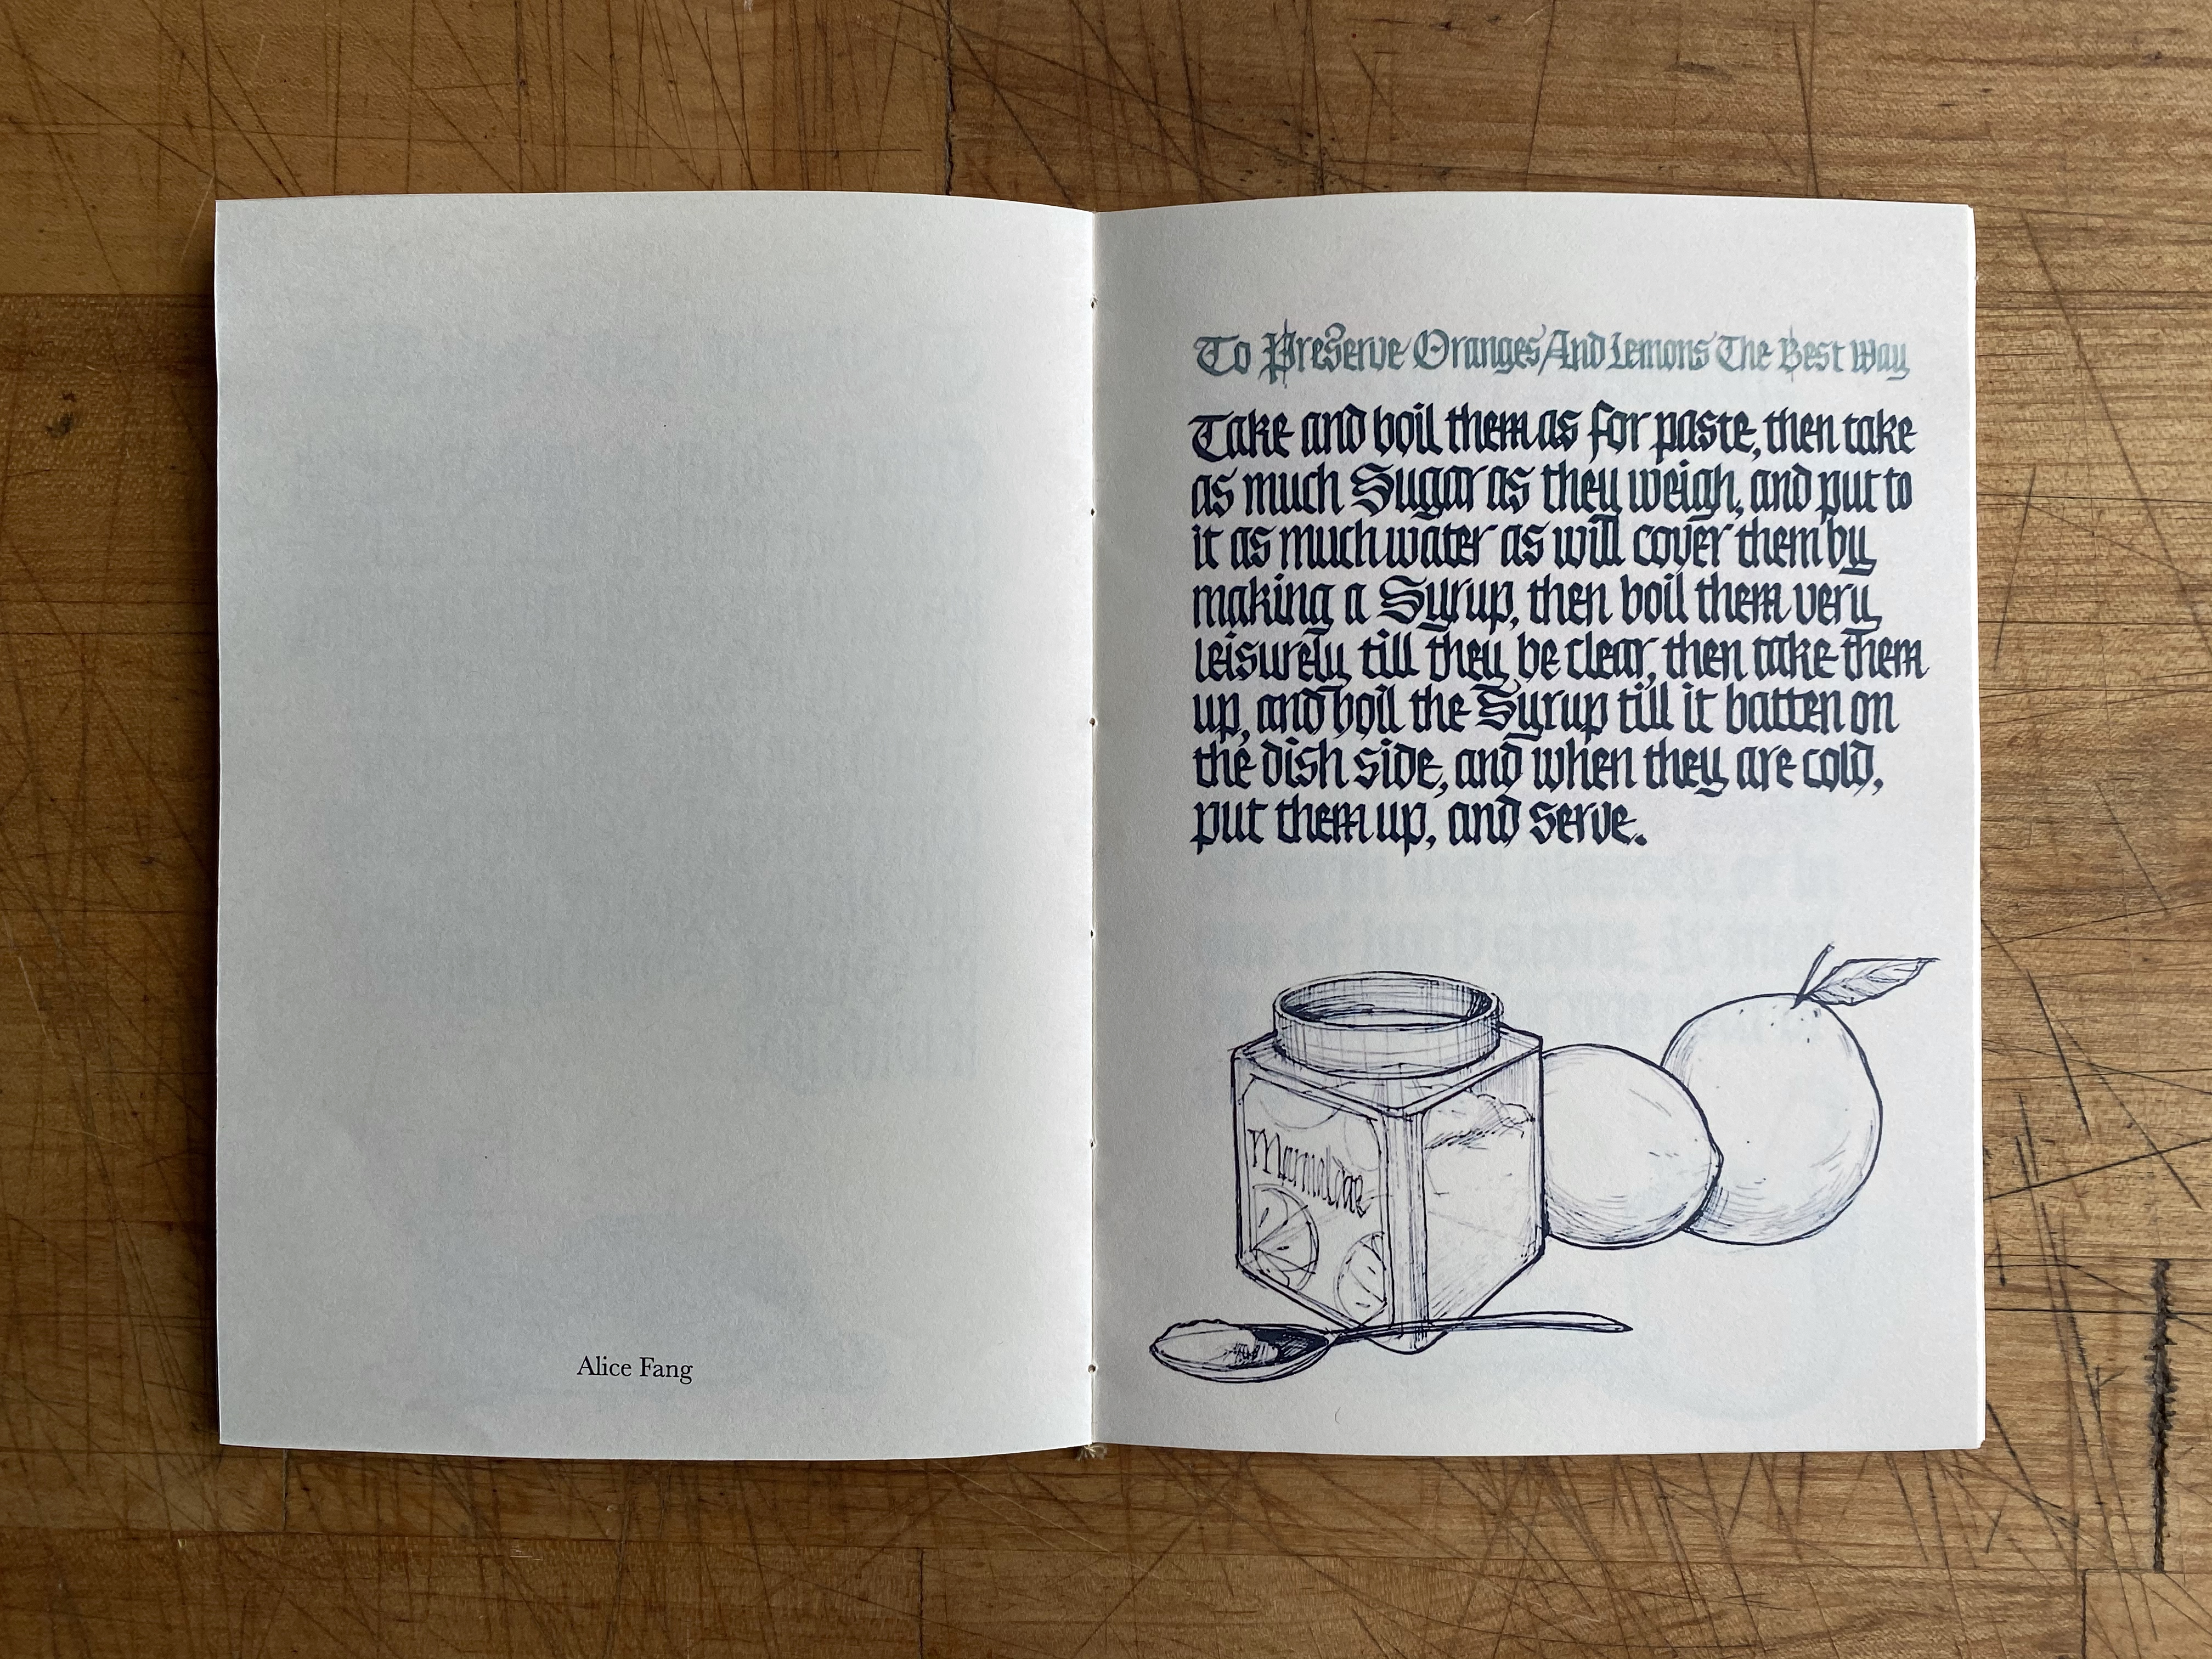 Alice Fang
To Preserve Oranges And Lemons The Best Way
Take and boil them as for paste, then take
as much Sugar as they weigh, and put to
it as much water as will cover them by
making a Syrup, then boil them very
leisurely till they be clear, then take them
up, and boil the Syrup till it batten on
the dish side, and when they are cold,
put them up, and serve.
Marmalade